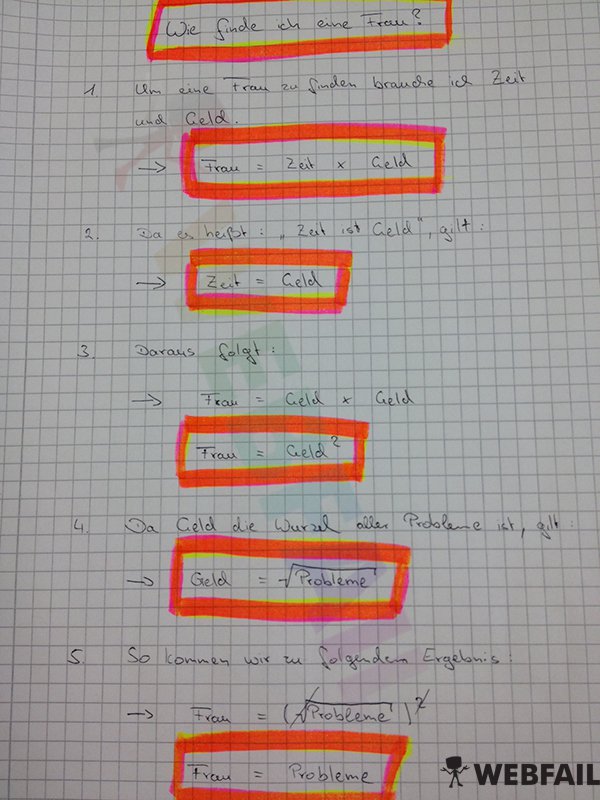 Wie finde ich eine Frau?
1. Um eine Frau zu finden brauche ich Zeit
und Geld.
→ Frau = Zeit x Geld
2. Da es heißt: „Zeit ist Geld", gilt:
→ Zeit = Geld
3. Daraus folgt:
→ Frau = Geld x Geld
Frau = Geld²
4. Da Geld die Wurzel aller Probleme ist, gilt:
→ Geld = √Probleme
5. So kommen wir zu folgendem Ergebnis:
→ Frau = (√Probleme)²
Frau = Probleme
WEBFAIL